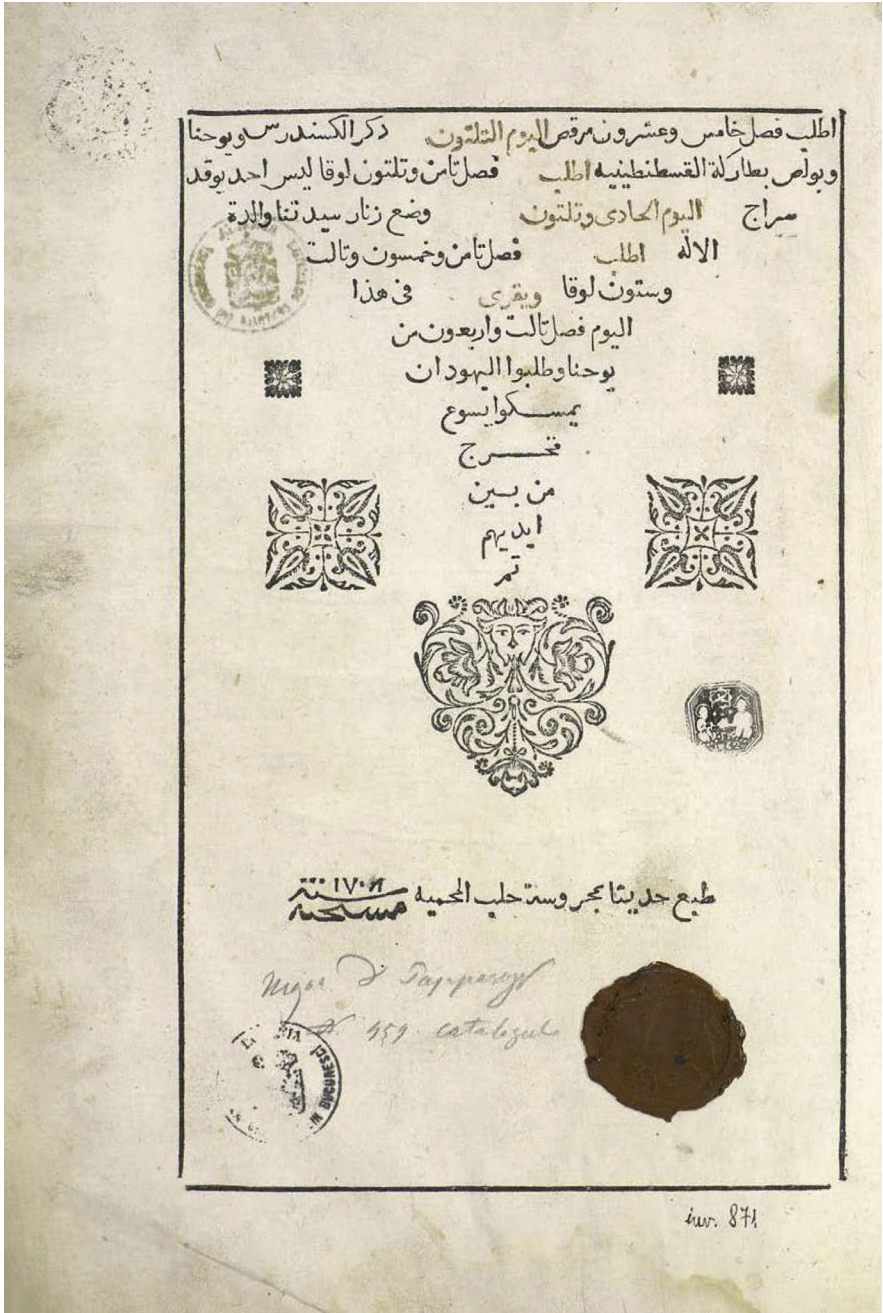 اطلب فصل خامس وعشرون مرقص اليوم التلتون دكر الكسندرس ويوحنا
وبولص بطاركة القسطنطينيه اطلب فصل تامن وتلتون لوقا ليس احد يوقد
سراج اليوم الحادى وتلتون وضع زنار سيدتنا والدة
الاله اطلب فصل تامن وخمسون وتالت
وستون لوقا ويقرى فى هذا
اليوم فصل تالت واربعون من
يوحنا وطلبوا اليهود ان
يمسكوا يسوع
فخرج
من بين
ايديهم
تم
طبع حديثا بمحروسة حلب المحميه سنة ١٧٠٨
مسيحية
N 459 catalogul
BUCURESCI
inv. 871